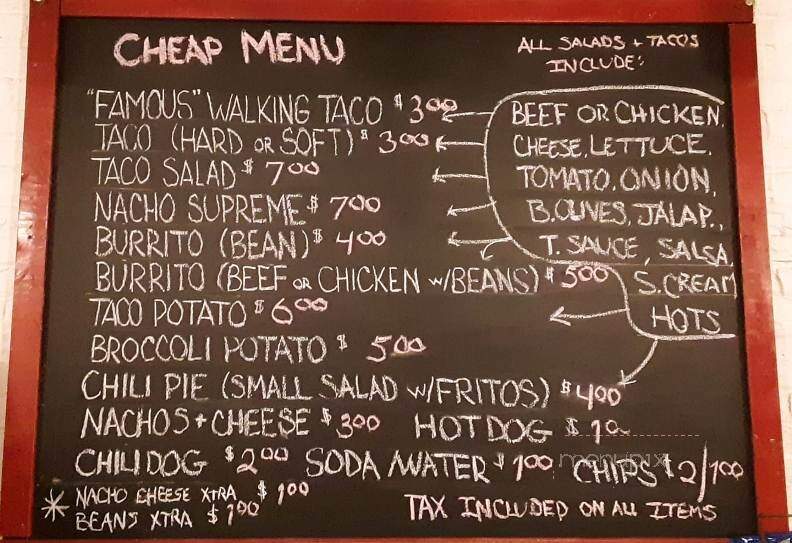 CHEAP MENU
ALL SALADS + TACOS
INCLUDE:
"FAMOUS" WALKING TACO $3.00
TACO (HARD OR SOFT) $3.00
TACO SALAD $7.00
NACHO SUPREME $7.00
BURRITO (BEAN) $4.00
BURRITO (BEEF OR CHICKEN W/BEANS) $5.00
TACO POTATO $6.00
BROCCOLI POTATO $5.00
BEEF OR CHICKEN,
CHEESE, LETTUCE,
TOMATO, ONION,
B.OLIVES, JALAP.,
T. SAUCE, SALSA,
S.CREAM
HOTS
CHILI PIE (SMALL SALAD W/FRITOS) $4.00
NACHOS + CHEESE $3.00 HOT DOG $1.00
CHILI DOG $2.00 SODA/WATER $1.00 CHIPS $2/1.00
* NACHO CHEESE XTRA $1.00
BEANS XTRA $1.00
TAX INCLUDED ON ALL ITEMS
menupix